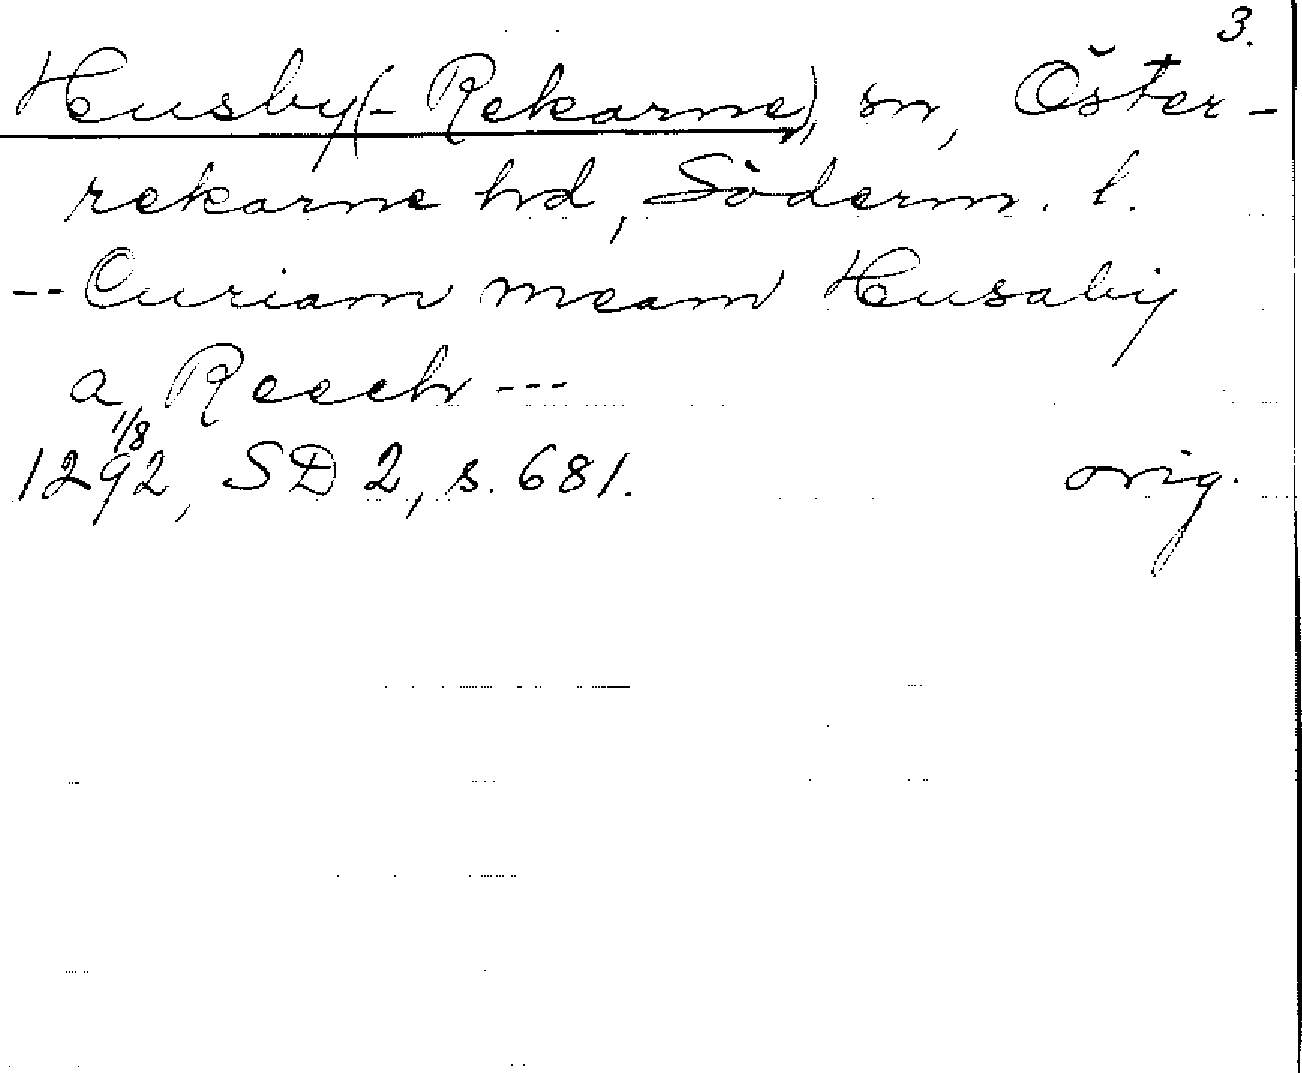 3.
Husby(-Rekarne), sn, Öster-
rekarne hd, Söderm. l.
-- Curiam meam Husaby
a Reech ---
1/8
1292, SD 2, s. 681. orig.